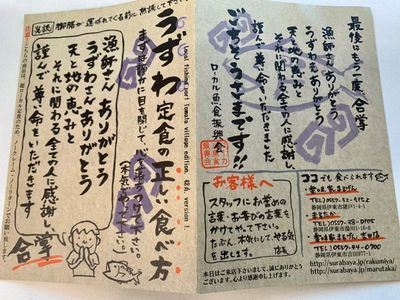 必読 御膳が運ばれてくる前に熟読して下さい
Local fishing port Tomato village edition. R26. version 1.
うずわ定食の正しい食べ方
まずは静かに目を閉じて、心を落ちつけて下さい。
(本気でやって下さい)
漁師さんありがとう
うずわさんありがとう
天と地の恵みと
それに関わる全ての人に感謝し、
謹んで尊い命をいただきます
合掌
最後にもう一度 合掌
漁師さんありがとう
うずわもありがとう
天と地の恵みと
それに関わる全ての人に感謝し、
謹んで尊い命をいただきました
ごちそうさまです!!
ローカル魚食振興会
お客様へ
スタッフにお褒めの
言葉・お歓びの言葉を
かけてやって下さい。
たぶん、本気になって、やる気
を出します。
本日はご来店下さいまして、誠にありがとう
ございます。心より感謝申し上げます。
ココでも食べられます
http://surabaya.jp/rakumiya/
http://surabaya.jp/marutaka/